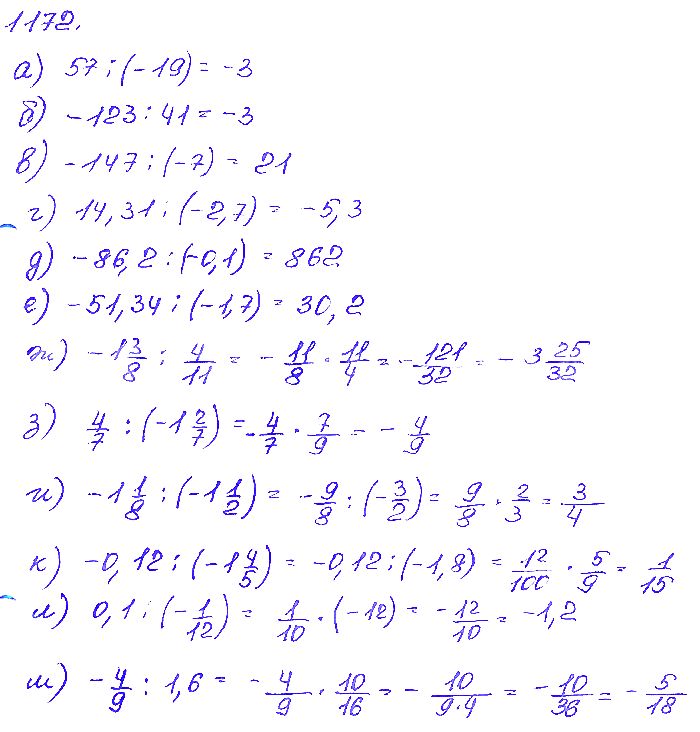 1172.
а) 57 : (-19) = -3
б) -123 : 41 = -3
в) -147 : (-7) = 21
г) 14,31 : (-2,7) = -5,3
д) -86,2 : (-0,1) = 862
е) -51,34 : (-1,7) = 30,2
ж) -1 3/8 : 4/11 = - 11/8 · 11/4 = - 121/32 = - 3 25/32
з) 4/7 : (-1 2/7) = - 4/7 · 7/9 = - 4/9
и) -1 1/8 : (-1 1/2) = - 9/8 : (- 3/2) = 9/8 · 2/3 = 3/4
к) -0,12 : (-1 4/5) = -0,12 : (-1,8) = 12/100 · 5/9 = 1/15
л) 0,1 : (- 1/12) = 1/10 · (-12) = - 12/10 = -1,2
м) - 4/9 : 1,6 = - 4/9 · 10/16 = - 10/9·4 = - 10/36 = - 5/18